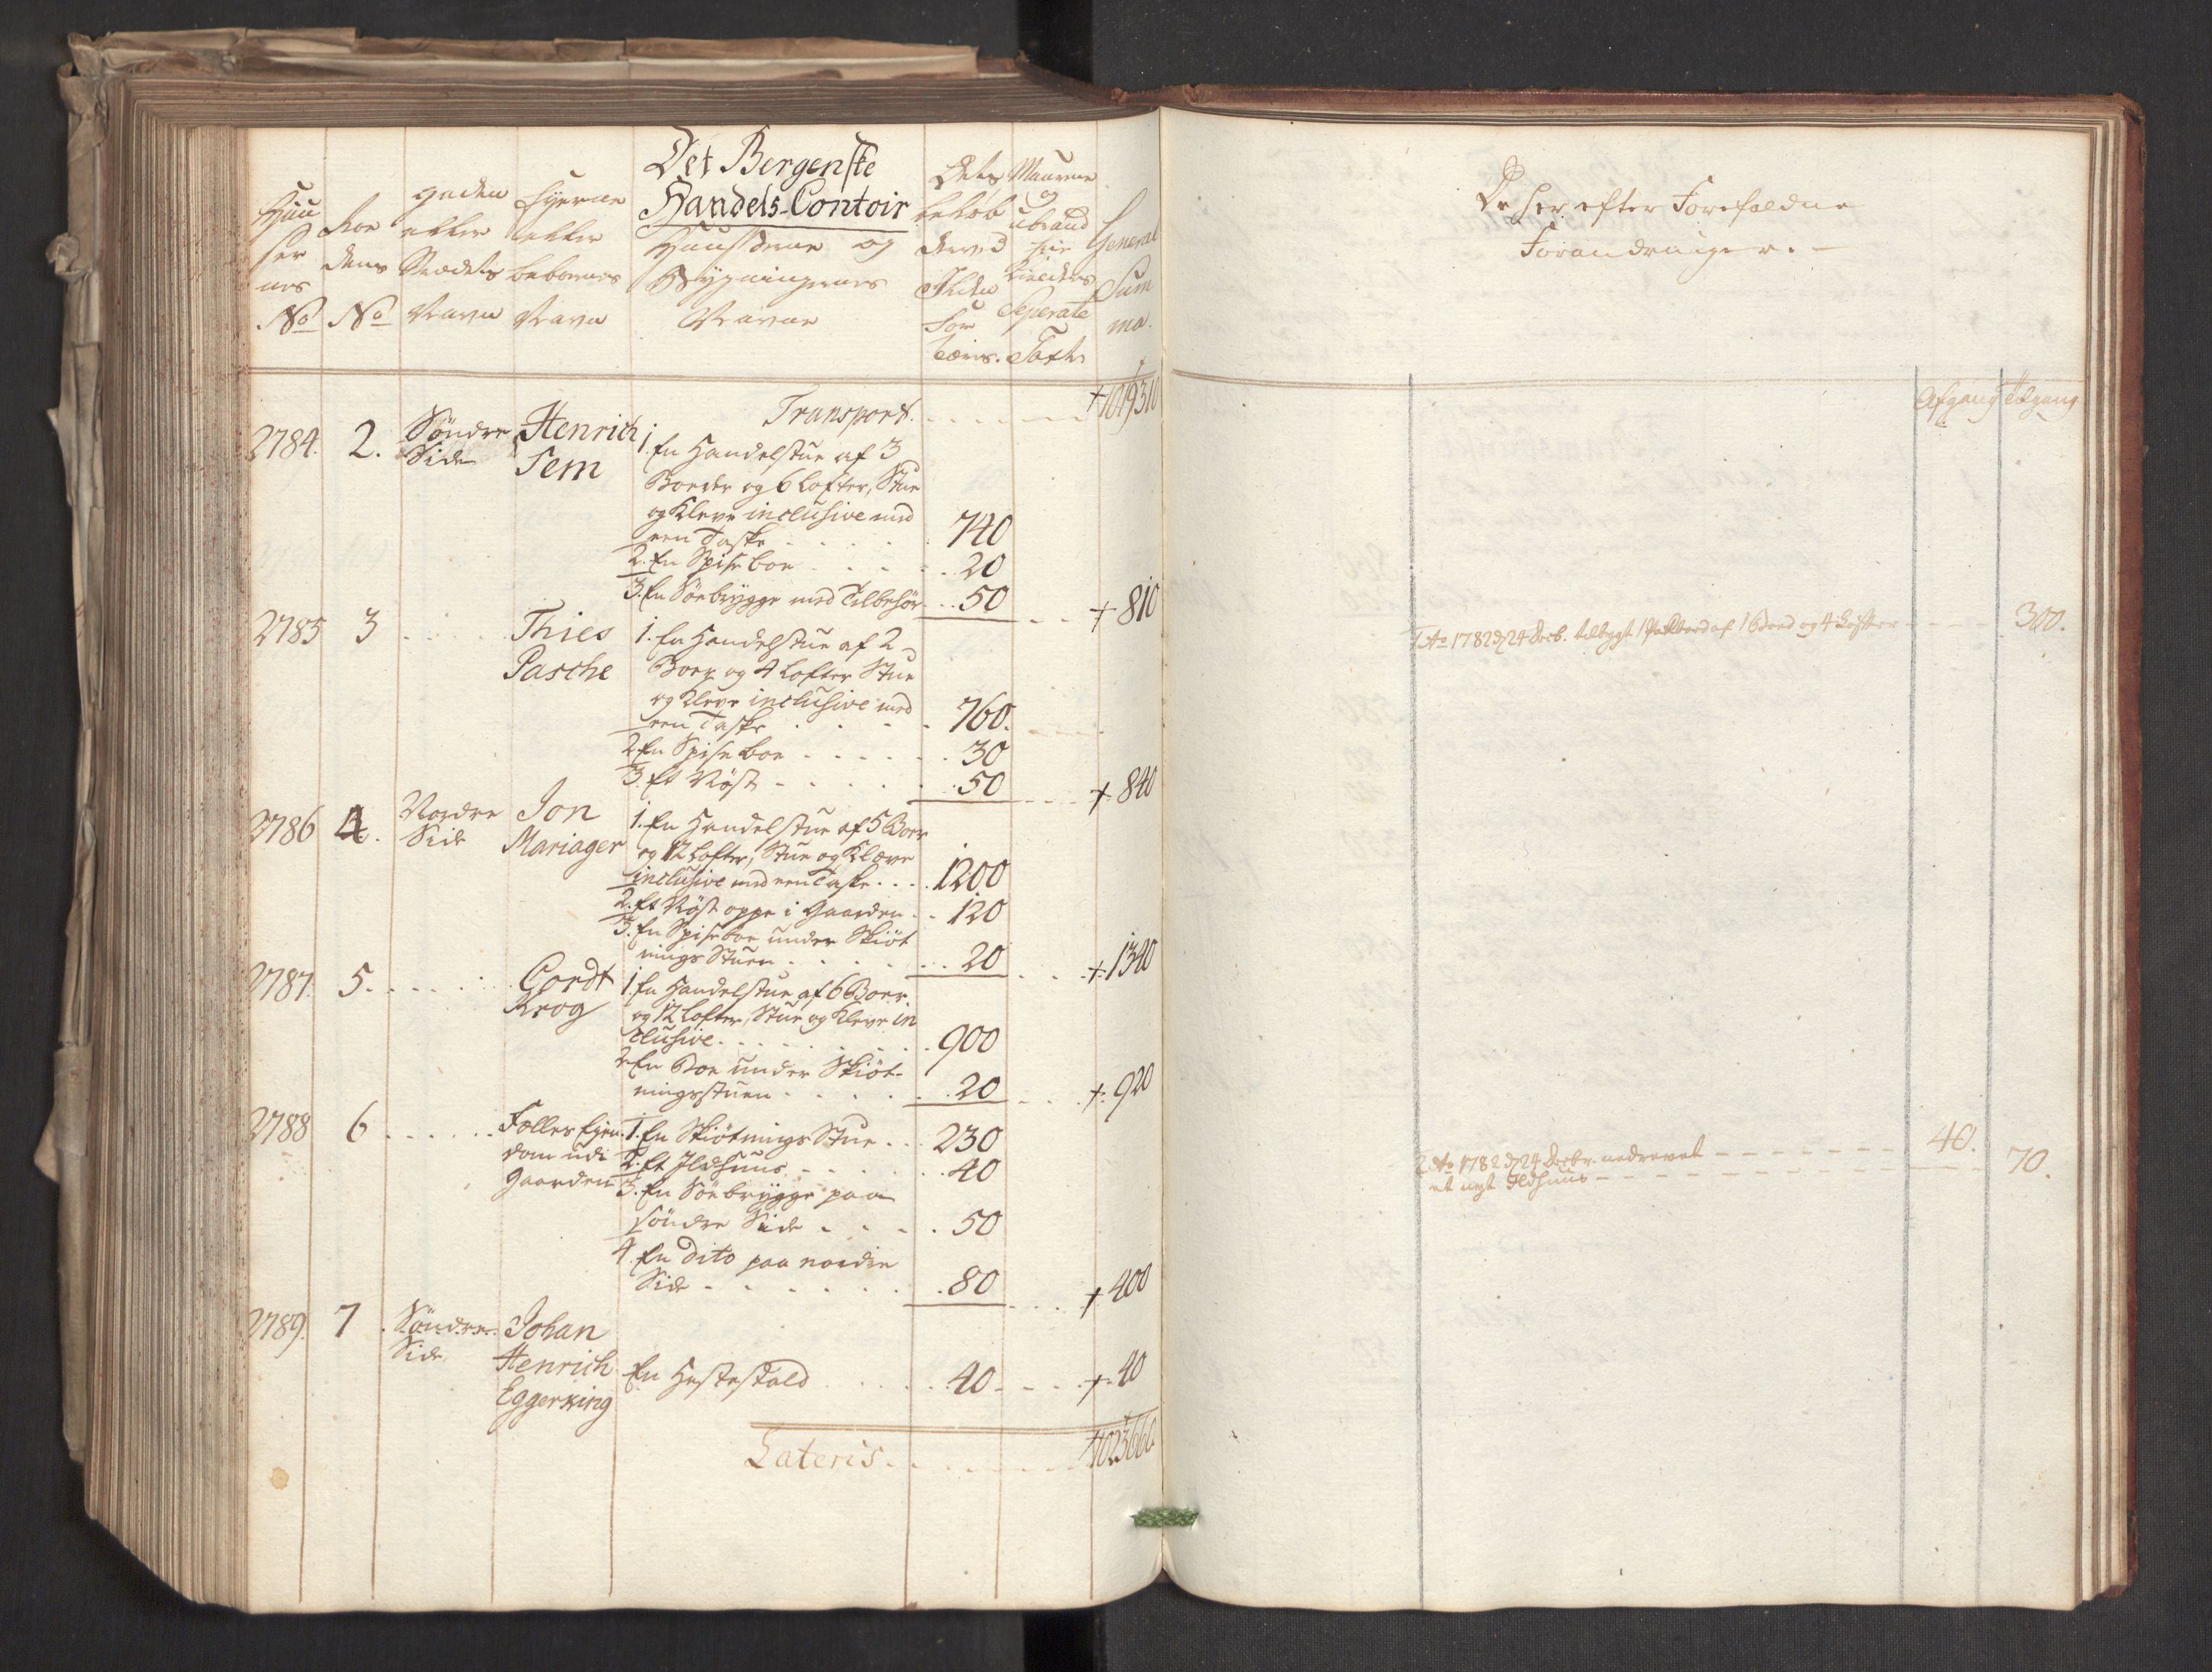 Det Bergenske
Handels-Contoir
Huusernes No
Roedens No
Gaden eller Stædets Navn
Ejerne eller beboernes Navn
Huussene og
Bygningernes
Navne
Dets beløb
derved
Ilden
for
tæres.
Maurene
og
ubrand
Seperate
Taxt
General
Sum
ma.
Transport. 1019310
2784. 2. Søndre Side Henrich Sem
1. En Handelstue af 3
Boeder og 6 Lofter, Stue
og Kleve inclusive med
een Taske 740
2. En Spise boe 20
3. En Søebrygge med Tilbehør 50 + 810
2785 3 Thies Pasche
1. En Handelstue af 2
Boer og 4 Lofter Stue
og Kleve inclusive med
een Taske 760.
2. En Spise boe 30
3. Et Nøst 50 + 840
2786 4. Nordre Side Jon Mariager
1. En Handelstue af 5 Boer
og 12 Lofter, Stue og Kleve
inclusive med een Taske 1200
2. Et Nøst oppe i Gaarden 120
3. En Spiseboe under Skiøt
nings Stuen 20 + 1340
2787. 5. Cordt Krog
1. En Handelstue af 6 Boer
og 12 Lofter, Stue og Kleve in
clusive 900
2. En Boe under Skiøt-
ningsstuen 20 + 920
2788 6 Fælles Ejen-
dom udi
Gaarden
1. En Skiøtnings Stue 230
2. Et Ildhuus 40
3. En Søebrygge paa
søndre Side 50
4. En Dito paa nordre
Side 80 + 400
2789. 7. Søndre Side Johan
Henrich
Eggerking
En Hestestald 40 + 40
Lateris 1023660
De her efter Forefaldne
Forandringer.
Afgang Tilgang
1. Ao 1782 d 24 Decb. tilbygt 1 af 1 Boed og 4 Lofter 300.
2. Ao 1782 d 24 Decbr. nedrevet 40.
et nyt Ildhuus 70.